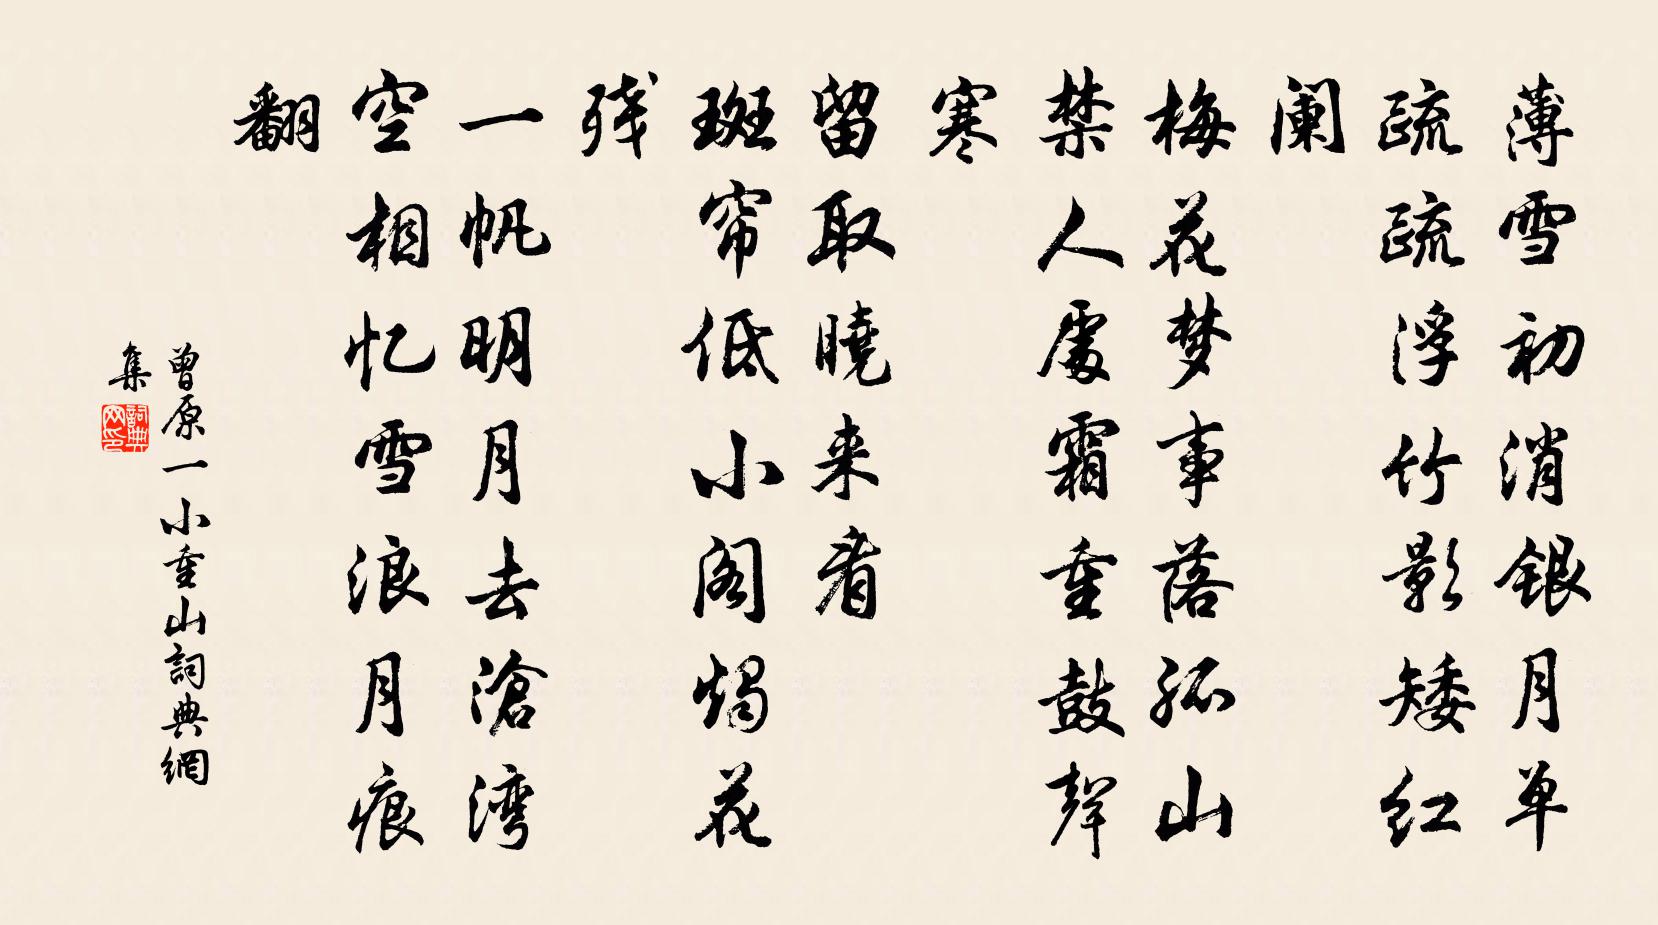 薄雪初消银月单
疏疏浮竹影矮红
阑
梅花梦事落孤山
禁人處霜重鼓聲
寒
留取曉来看
斑帘低小阁烛花
残
一帆明月去滄湾
空相忆雪浪月痕
翻
曾原一小重山詞典網
集
詞典网印